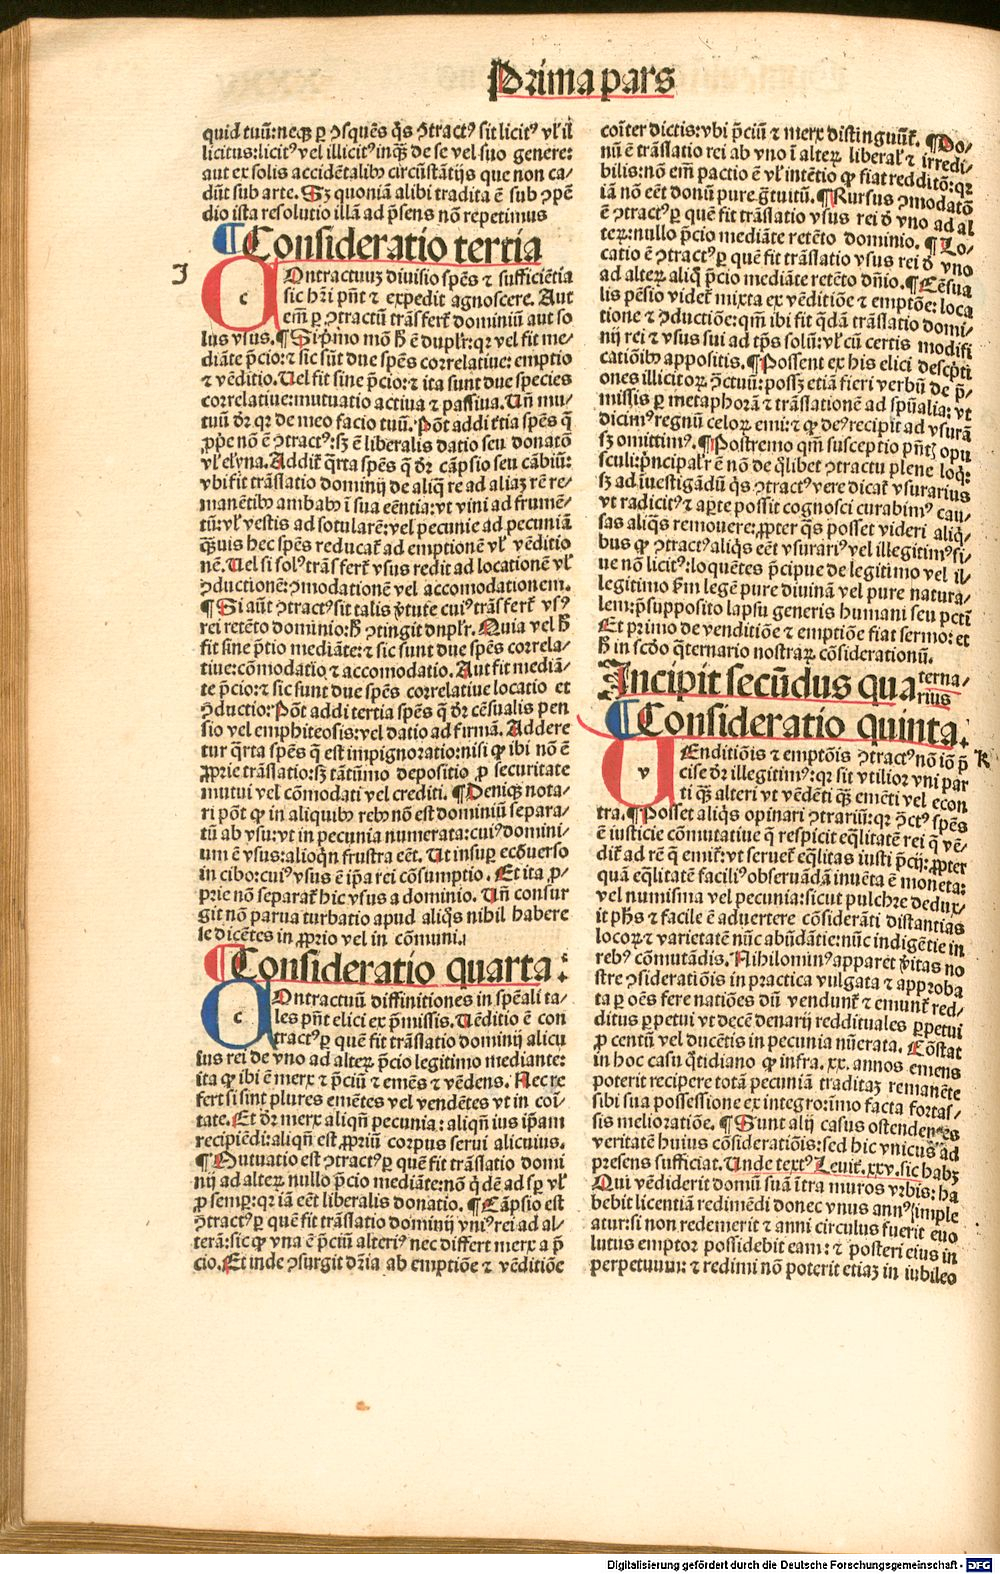 Prima pars
quid tuū: neqꝫ ꝑ ꝯsquēs q̄s ꝯtractꝰ sit licitꝰ vl̕ il
licitus: licitꝰ vel illicitꝰ inqꝫ de se vel suo genere:
aut ex solis accidētalibꝰ circūstātijs que non ca-
dūt sub arte. Sꝫ quoniā alibi tradita ē sub ꝯpē
dio ista resolutio illā ad p̄sens nō repetimus
¶ Consideratio tertia
J
c Ontractuuꝫ diuisio spēs ⁊ sufficiētia
sic hr̄i pn̄t ⁊ expedit agnoscere. Aut
em̄ ꝑ ꝯtractū trāsfert̄ dominiū aut so
lus vsus. ¶ Si p̄imo mō h̄ ē dupl̕r: qꝛ vel fit me-
diāte p̄cio: ⁊ sic sūt due spēs correlatiue: emptio
⁊ vēditio. Uel fit sine p̄cio: ⁊ ita sunt due species
correlatiue: mutuatio actiua ⁊ passiua. Un̄ mu-
tuū dr̄ qꝛ de meo facio tuū. Pōt addi t̄tia spēs q̄
ꝓpe nō ē ꝯtractꝰ: sꝫ ē liberalis datio seu donatō
vl̕ elyna. Addit̄ q̄rta spēs q̄ dr̄ cāpsio seu cābiū:
vbi fit trāslatio dominij de aliq̄ re ad aliaꝫ rē re-
manētibꝰ ambabꝰ ī sua eētia: vt vini ad frumē-
tū: vl̕ vestis ad sotularē: vel pecunie ad pecuniā
qꝫuis hec spēs reducat̄ ad emptionē vl̕ vēditio
nē. Uel si solꝰ trāsfert̄ vsus redit ad locationē vl̕
ꝯductionē: ꝯmodationē vel accomodationem.
¶ Si aūt ꝯtractꝰ sit talis v̄tute cuiꝰ trāsfert̄ vsꝰ
rei retēto dominio: h̄ ꝯtingit dupl̕r. Quia vel h̄
fit sine p̄tio mediāte: ⁊ sic sunt due spēs correla-
tiue: cōmodatio ⁊ accomodatio. Aut fit mediā-
te p̄cio: ⁊ sic sunt due spēs correlatiue locatio et
ꝯductio: Pōt addi tertia spēs q̄ dr̄ cēsualis pen
sio vel emphiteosis: vel datio ad firmā. Addere
tur q̄rta spēs q̄ est impignoratio: nisi ꝙ ibi nō ē
ꝓprie trāslatio: sꝫ tātūmo depositio ꝓ securitate
mutui vel cōmodati vel crediti. ¶ Deniqꝫ nota-
ri pōt ꝙ in aliquibꝰ rebꝰ nō est dominiū separa-
tū ab vsu: vt in pecunia numerata: cuiꝰ domini-
um ē vsus: alioq̄n frustra eēt. Ut insuꝑ ecōuerso
in cibo: cuiꝰ vsus ē ip̄a rei cōsumptio. Et ita ꝓ-
prie nō separat̄ hic vsus a dominio. Un̄ consur
git nō parua turbatio apud aliq̄s nihil habere
se dicētes in ꝓprio vel in cōmuni.
¶ Consideratio quarta:
c Ontractuū diffinitiones in spēali ta-
les pn̄t elici ex p̄missis. Uēditio ē con
tractꝰ ꝑ quē fit trāslatio dominij alicu
ius rei de vno ad alteꝝ p̄cio legitimo mediante:
ita ꝙ ibi ē merx ⁊ p̄ciū ⁊ emēs ⁊ vēdens. Nec re
fert si sint plures emētes vel vendētes vt in coī-
tate. Et dr̄ merx aliqn̄ pecunia: aliqn̄ ius ip̄am
recipiēdi: aliqn̄ est ꝓpriū corpus serui alicuius.
¶ Mutuatio est ꝯtractꝰ ꝑ quē fit trāslatio domi
nij ad alteꝝ nullo p̄cio mediāte: nō q̄dē ad sꝑ vl̕
ꝓ semꝑ: qꝛ iā eēt liberalis donatio. ¶ Cāpsio est
ꝯtractꝰ ꝑ quē fit trāslatio dominij vniꝰ rei ad al-
terā: sic ꝙ vna ē p̄ciū alteriꝰ nec differt merx a p̄
cio. Et inde ꝯsurgit dr̄ia ab emptiōe ⁊ vēditiōe
coīter dictis: vbi p̄ciū ⁊ merx distinguūt̄. ¶ Do-
nū ē trāslatio rei ab vno ī alteꝝ liberal̕ ⁊ irredi-
bilis: nō em̄ pactio ē vl̕ intētio ꝙ fiat redditō: qꝛ
iā nō eēt donū pure g̈tuitū. ¶ Rursus ꝯmodatō
ē ꝯtractꝰ ꝑ quē fit trāslatio vsus rei d̄ vno ad al
teꝝ: nullo p̄cio mediāte retēto dominio. ¶ Lo-
catio ē ꝯtractꝰ ꝑ quē fit trāslatio vsus rei d̄ vno
ad alteꝝ aliq̄ p̄cio mediāte retēto dn̄io. ¶ Cēsua
lis pēsio videt̄ mixta ex vēditiōe ⁊ emptōe: loca
tione ⁊ ꝯductiōe: qm̄ ibi fit q̄dā trāslatio domi-
nij rei ⁊ vsus sui ad tp̄s solū: vl̕ cū certis modifi
catiōibꝰ appositis. ¶ Possent ex his elici descp̄ti
ones illicitoꝝ ꝯtctuū: possꝫ etiā fieri verbū de p̄-
missis ꝑ metaphorā ⁊ trāslationē ad spūalia: vt
dicimꝰ regnū celoꝝ emi: ⁊ ꝙ deꝰ recipit ad vsurā
sꝫ omittimꝰ. ¶ Postremo qm̄ susceptio pn̄tꝭ opu
sculi: p̄ncipal̕r ē nō de q̄libet ꝯtractu plene loq̄:
sꝫ ad īuestigādū q̄s ꝯtractꝰ vere dicat̄ vsurarius
vt radicitꝰ ⁊ aꝑte possit cognosci curabimꝰ cau-
sas aliq̄s remouere: ꝓpter q̄s posset videri aliq̄-
bus ꝙ ꝯtractꝰ aliq̄s eēt vsurariꝰ vel illegitimꝰ si-
ue nō licitꝰ: loquētes p̄cipue de legitimo vel il-
legitimo ẜm legē pure diuinā vel pure natura-
lem: p̄supposito lapsu generis humani seu pctī
Et primo de venditiōe ⁊ emptiōe fiat sermo: et
h̄ in scd̄o q̄ternario nostraꝝ cōsiderationū.
Incipit secūdus quaterna-
rius
¶ Consideratio quinta.
K
v Enditiōis ⁊ emptōis ꝯtractꝰ nō iō p̄
cise dr̄ illegitimꝰ: qꝛ sit vtilior vni par
ti qꝫ alteri vt vēdēti qꝫ emēti vel econ
tra. ¶ Posset aliq̄s opinari ꝯtrariū: qꝛ ꝯctꝰ spēs
ē iusticie cōmutatiue q̄ respicit eq̄litatē rei q̄ vē-
dit̄ ad rē q̄ emit̄: vt seruet̄ eq̄litas iusti p̄cij: ꝓpter
quā eq̄litatē faciliꝰ obseruādā inuēta ē moneta:
vel numisma vel pecunia: sicut pulchre dedux-
it ph̄s ⁊ facile ē aduertere cōsiderāti distantias
locoꝝ ⁊ varietatē nūc abūdātie: nūc indigētie in
rebꝰ cōmutādis. Nihilominꝰ apparet v̄itas no
stre ꝯsideratiōis in practica vulgata ⁊ approba
ta ꝑ oēs fere natiōes dū vendunt̄ ⁊ emunt̄ red-
ditus ꝑpetui vt decē denarij reddituales ꝑpetui
ꝓ centū vel ducētis in pecunia nūerata. Cōstat
in hoc casu q̄tidiano ꝙ infra .xx. annos emens
poterit recipere totā pecuniā traditaꝫ remanēte
sibi sua possessione ex integro: īmo facta fortas-
sis melioratiōe. ¶ Sunt alij casus ostendentes
veritatē huius cōsideratiōis: sed hic vnicus ad
presens sufficiat. Unde textꝰ Leuit̄. xxv. sic habꝫ
Qui vēdiderit domū suā ītra muros vrbis: ha
bebit licentiā redimēdi donec vnus annꝰ īmple
atur: si non redemerit ⁊ anni circulus fuerit euo
lutus emptor possidebit eam: ⁊ posteri eius in
perpetuum: ⁊ redimi nō poterit etiaꝫ in iubileo
Digitalisierung gefördert durch die Deutsche Forschungsgemeinschaft - DFG